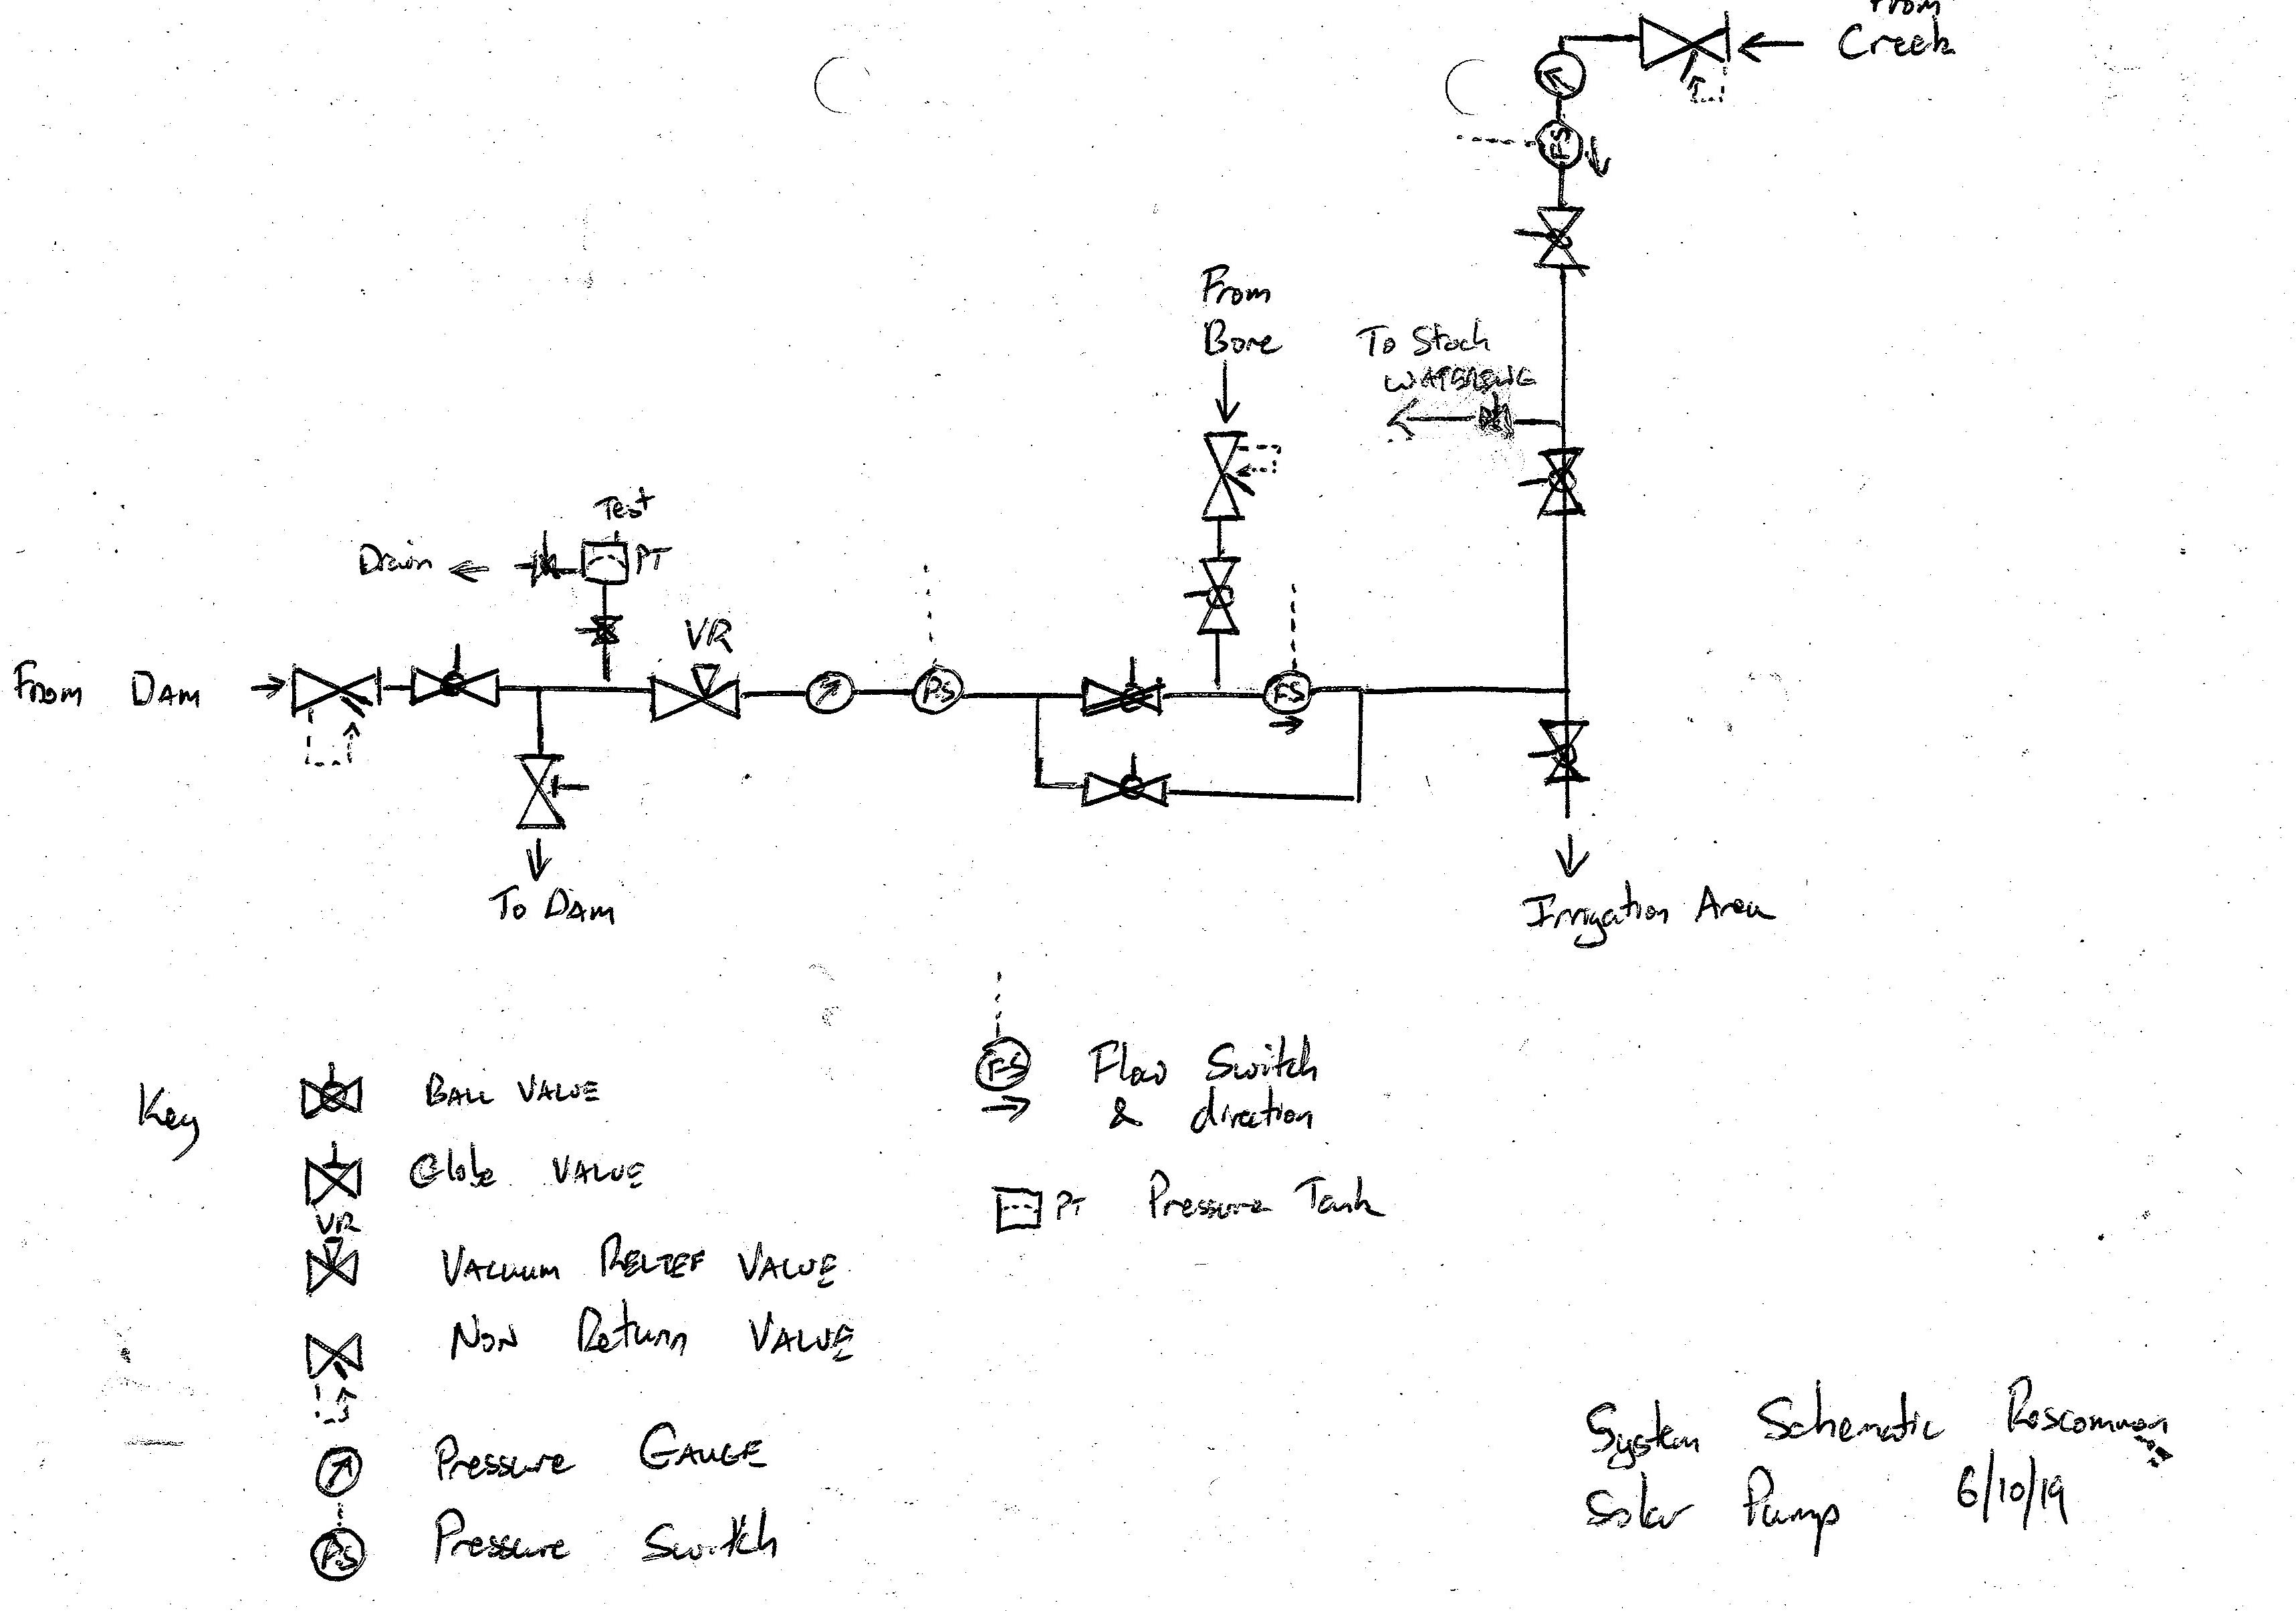 From
Creek
FS
From
Bore
To Stock
WATERING
Test
Drain
PT
VR
From DAM
PS
FS
To DAM
Irrigation Area
Key
BALL VALVE
Globe VALVE
VR
VACUUM RELIEF VALVE
NON Return VALVE
Pressure GAUGE
PS
Pressure Switch
FS
Flow Switch
& direction
PT Pressure Tank
System Schematic Roscommon
Solar Pump 6/10/19